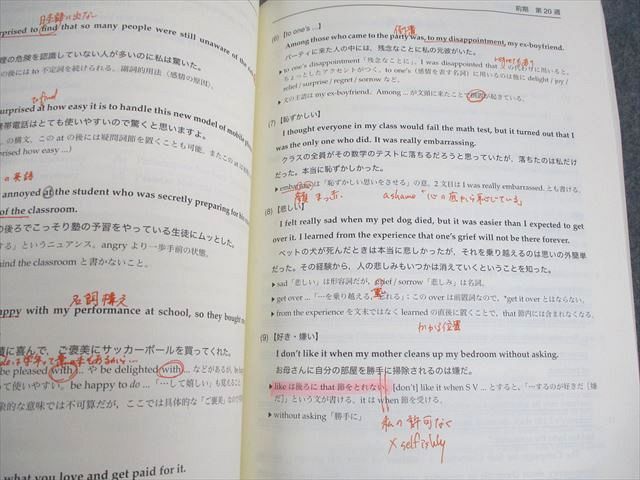 日本語に出ない
surprised to find that so many people were still unaware of the
理の危険を認識していない人が多いのに私は驚いた。
の後には to 不定詞を続けられる。副詞的用法〈感情の原因〉
to find
surprised at how easy it is to handle this new model of mobile
携帯電話はとても使いやすいので驚くと思いますよ。
の構文。この at の後には疑問詞節を置くことも可能。またこの at は
prised how easy ...)
の英語
annoyed at the student who was secretly preparing for his
of the classroom.
の後ろでこっそり塾の予習をやっている生徒にムッとした。
する」というニュアンス。angry より一歩手前の状態。
hind the classroom と書かないこと。
名詞構文
appy with my performance at school, so they bought
績に喜んで、ご褒美にサッカーボールを買ってくれた。
be pleased with ... や be delighted with ... などがあるが、be
て使いやすい。be happy to do ...「…して嬉しい」も覚えること
象的な意味では不可算だが、ここでは具体的な「ご褒美」なので
what you love and get paid for it.
前期 第20週
(6) [to one's ...]
倒置
Among those who came to the party was, to my disappointment, my ex-boyfriend.
パーティに来た人の中には、残念なことに私の元彼がいた。
▶ to one's disappointment「残念なことに」。I was disappointed that
の代わりに用いると、
ちょっとしたアクセントがつく。to one's〈感情を表す名詞〉に用いるのは他に delight / joy /
relief / surprise / regret / sorrow など。
▶ 文の主語は my ex-boyfriend. Among ... が文頭に来たことで倒置が起きている。
(7) [恥ずかしい]
I thought everyone in my class would fail the math test, but it turned out that I
was the only one who did. It was really embarrassing.
クラスの全員がその数学のテストに落ちるだろうと思っていたが、落ちたのは私だけ
だった。本当に恥ずかしかった。
▶ embarrass は「恥ずかしい思いをさせる」の意。2 文目は I was really embarrassed. とも書ける。
顔まっ赤
ashame
(8) [悲しい]
I felt really sad when my pet dog died, but it was easier than I expected to get
over it. I learned from the experience that one's grief will not be there forever.
ペットの犬が死んだときは本当に悲しかったが、それを乗り越えるのは思いの外簡単
だった。その経験から、人の悲しみもいつかは消えていくということを知った。
▶ sad「悲しい」は形容詞だが、grief / sorrow「悲しみ」は名詞。
▶ get over ...「…を乗り越える、忘れる」; この over は前置詞なので、*get it over とはならない。
▶ from the experience を文末ではなく learned の直後に置くことで、that 節内には含まれなくなる。
Mの位置
(9) [好き・嫌い]
I don't like it when my mother cleans up my bedroom without asking.
お母さんに自分の部屋を勝手に掃除されるのは嫌だ。
▶ like は後ろに that 節をとれない。[don't] like it when S V ... とすると、「…するのが好きだ［嫌
だ］」という文が書ける。it は when 節を受ける。
▶ without asking「勝手に」
私の許可なく
× selfishly